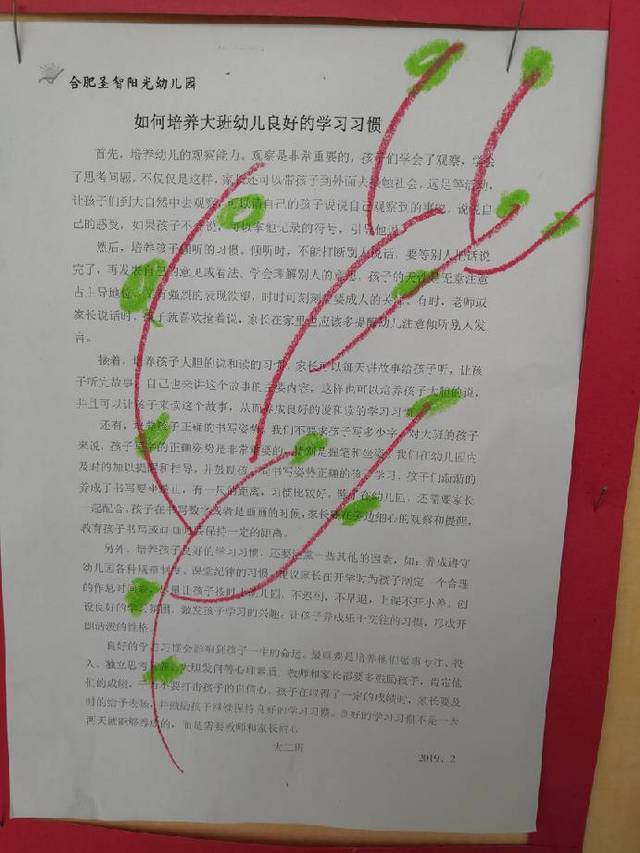 合肥圣智阳光幼儿园
如何培养大班幼儿良好的学习习惯
首先，培养幼儿的观察能力。观察是非常重要的，孩子们学会了观察，学会
了思考问题。不仅仅是这样，家长还可以带孩子到外面去接触社会，远足等活动，
让孩子们到大自然中去观察，可以请自己的孩子说说自己观察到的事物，说说自
己的感受，如果孩子不会说，可以拿他记录的符号，引导他说。
然后，培养孩子倾听的习惯。倾听时，不能打断别人说话，要等别人把话说
完了，再发表自己的意见或看法，学会理解别人的意思。孩子的天性是无意注意
占主导地位，有强烈的表现欲望，时时可刻渴望成人的关注。有时，老师或
家长说话时，孩子就喜欢抢着说，家长在家里也应该多提醒幼儿注意倾听别人发
言。
接着，培养孩子大胆的说和读的习惯。家长可以每天讲故事给孩子听，让孩
子听完故事，自己也来讲这个故事的主要内容，这样也可以培养孩子大胆的说，
并且可以让孩子来读这个故事，从而养成良好的说和读的学习习惯。
还有，培养孩子正确的书写姿势。我们不要求孩子写多少字，对大班的孩子
来说，孩子写字的正确姿势是非常重要的，特别是握笔和坐姿。我们在幼儿园应
及时的加以提醒和指导，并鼓励孩子向书写姿势正确的孩子学习。孩子们渐渐的
养成了书写要坐端正，有一尺的距离，习惯比较好。除了在幼儿园，还需要家长
一起配合，孩子在书写数字或者是画画的时候，家长要在旁边细心的观察和提醒，
教育孩子书写或画画时要保持一定的距离。
另外，培养孩子良好的学习习惯，还要注意一些其他的因素，如：养成遵守
幼儿园各种规章制度、课堂纪律的习惯。建议家长在开学时为孩子制定一个合理
的作息时间表，尽量让孩子按时上幼儿园，不迟到，不早退，上课不开小差，创
设良好的学习氛围，激发孩子学习的兴趣。让孩子养成乐于交往的习惯，形成开
朗活泼的性格。
良好的学习习惯会影响到孩子一生的命运。最重要是培养他们做事专注、投
入、独立思考，大胆发问等心理素质。教师和家长都要多鼓励孩子，肯定他
们的成绩，千万不要打击孩子的自信心。孩子在取得了一定的成绩时，家长要及
时的给予表扬，并鼓励孩子继续保持良好的学习习惯。良好的学习习惯不是一天
两天就能够养成的，而是需要教师和家长耐心
大二班
2019、2